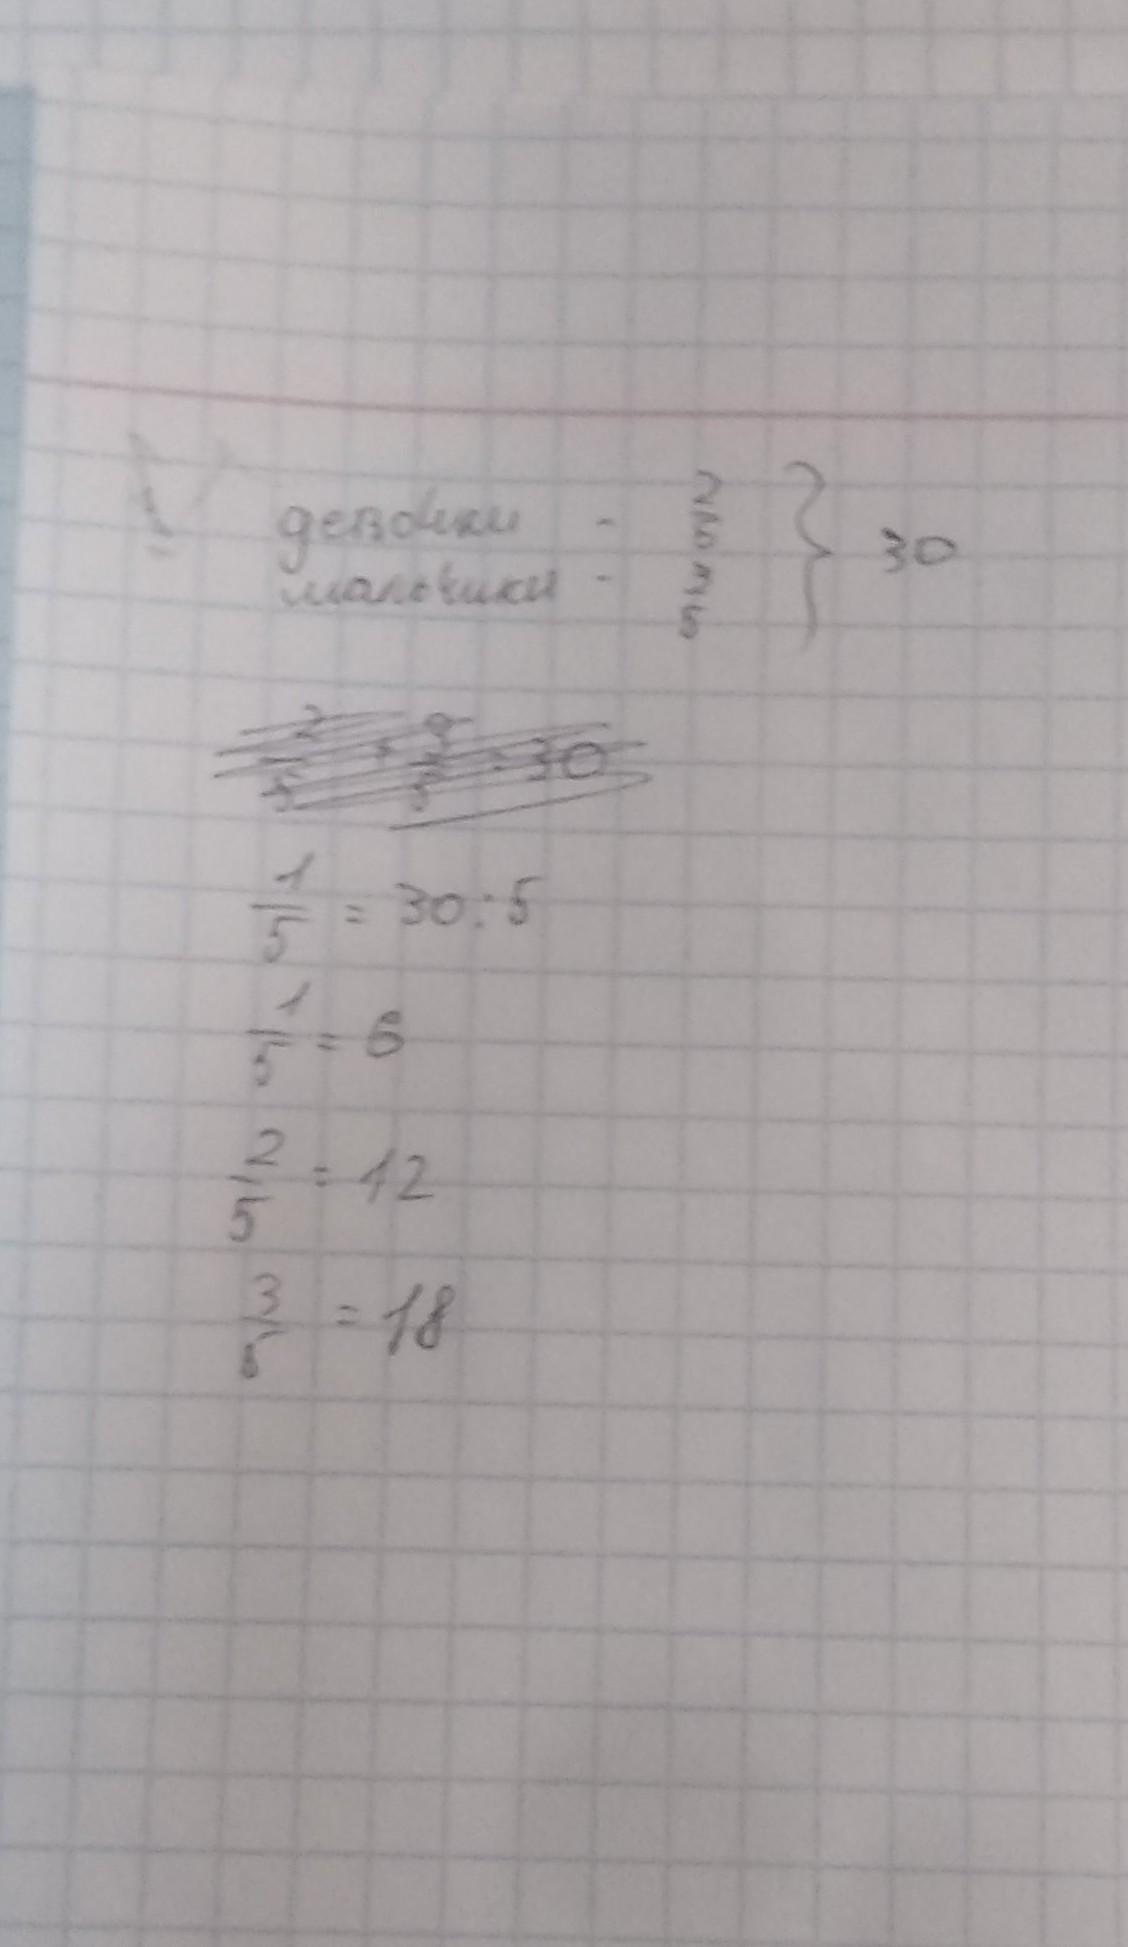 девочки - 2/5 } 30
мальчики - 3/5
1/5 = 30 : 5
1/5 = 6
2/5 = 12
3/5 = 18